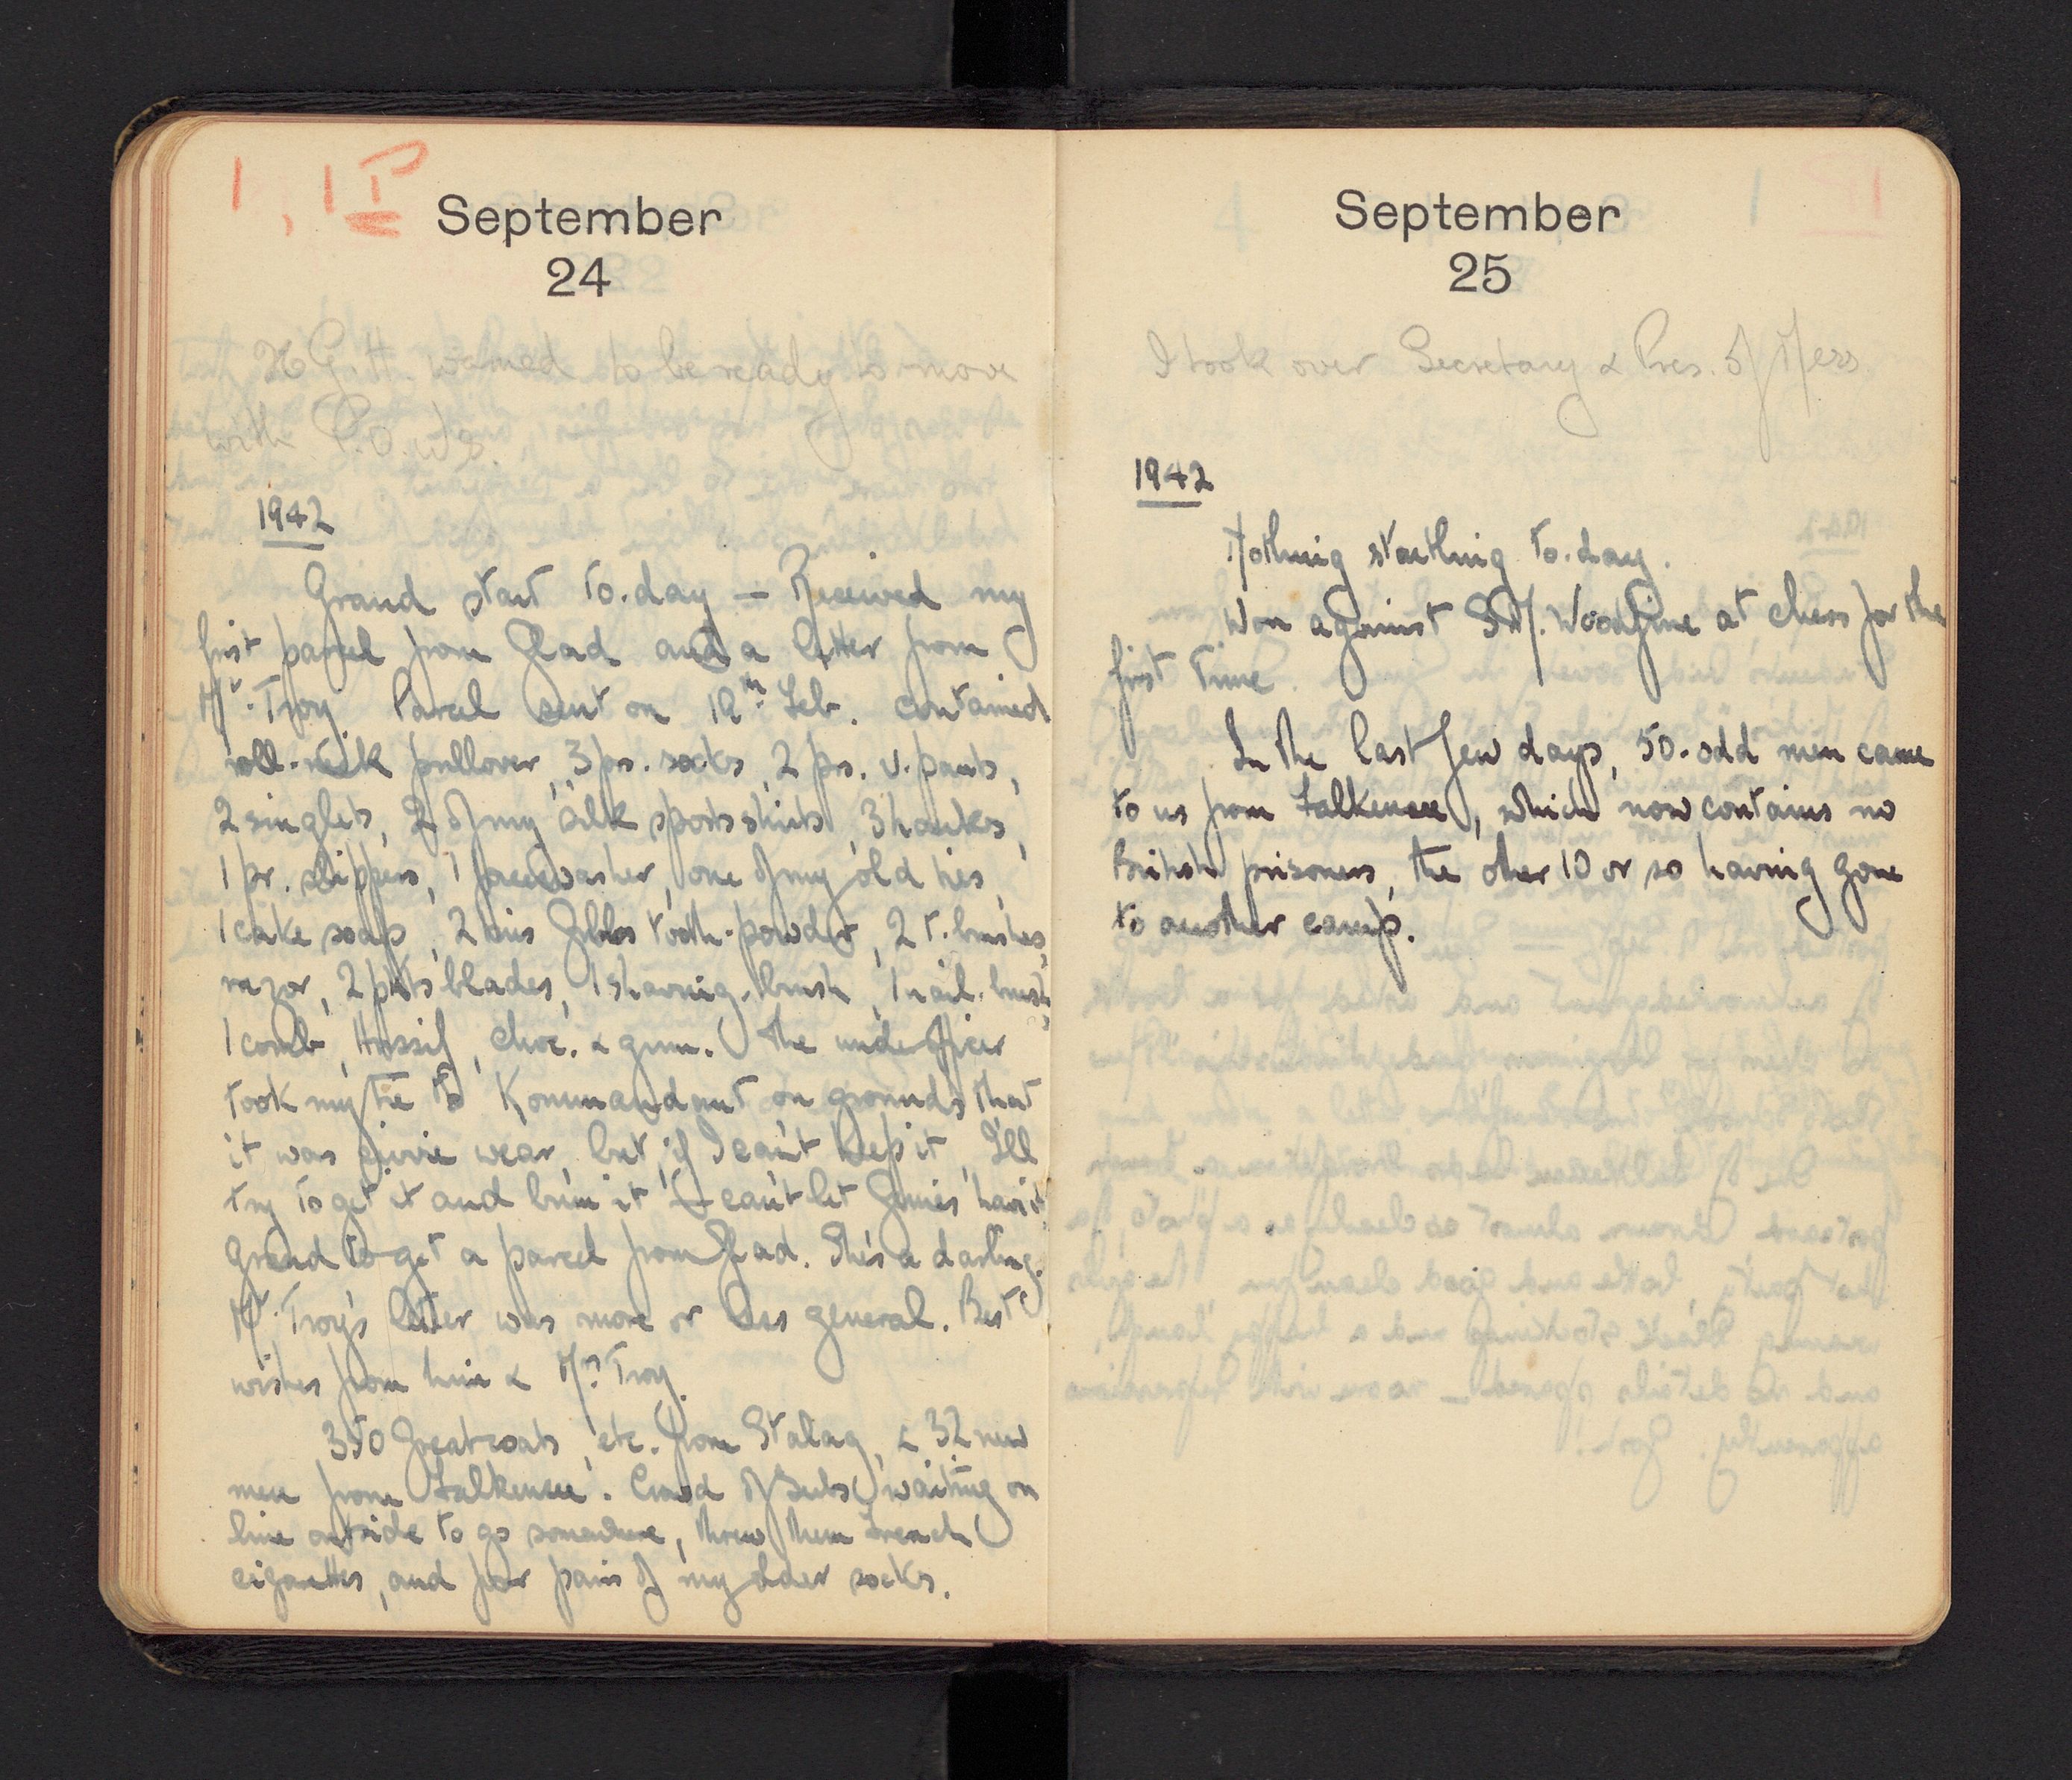 1, 1 P
September
24
H.G.H. warned to be ready to move
with P.O.W's.
1942
Grand start to-day — Received my
first parcel from Glad and a letter from
Mr. Troy Parcel sent on 19th Feb. contained
roll-neck pullover, 3 prs. socks, 2 prs. u. pants,
2 singlets, 2 of my silk sports shirts, 3 hanks,
1 pr. slippers, 1 facewasher, one of my old ties,
1 cake soap, 2 tins Gibbs tooth-powder, 2 t. brushes,
razor, 2 pkts blades, 1 shaving-brush, 1 nail-brush,
1 comb, Hussif, choc. & gum. The underofficer
took my tie to Kommandant on grounds that
it was civvie wear, but if I can't keep it, I'll
try to get it and burn it — can't let have it.
Grand to get a parcel from Glad. She's a darling.
Mr Troy's letter was more or less general. Best
wishes from him & Mrs Troy.
350 Greatcoats, etc. from Stalag, & 32 new
men from Falkensee. Crowd of Serbs waiting on
line outside to go somewhere, threw them French
cigarettes, and four pairs of my older socks.
September
25
I took over Secretary & Pres. of Mess
1942
Nothing startling to-day.
Won against S.M. Woodfine at chess for the
first time.
In the last few days, 50-odd men came
to us from Falkensee, which now contains no
British prisoners, the other 10 or so having gone
to another camp.